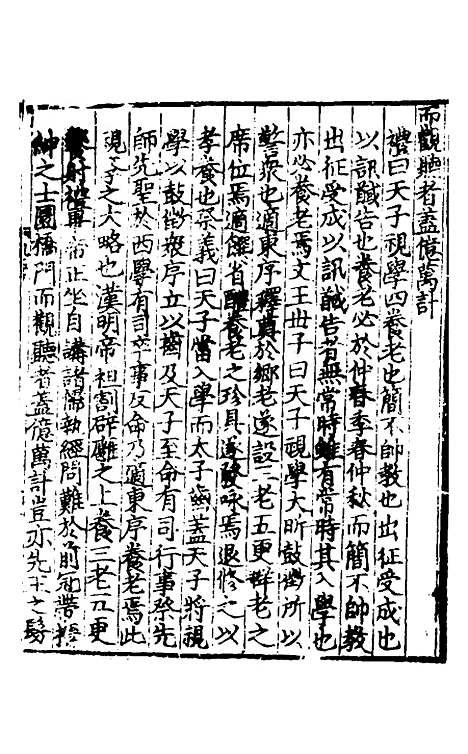 而觀聽者蓋億萬計
禮曰天子視學四養老也簡不帥教也出征受成也
以訊馘告也養老必於仲春季春仲秋而簡不帥教
出征受成以訊馘告者無常時雖有常時其入學也
亦必養老焉文王世子曰天子視學大昕鼓徵所以
警衆也適東序釋奠於鄉老遂設三老五更群老之
席位焉適饌省醴養老之珍具遂發咏焉退修之以
孝養也祭義曰天子當入學而太子齒蓋天子將視
學以鼓徵衆序立以齒及天子至命有司行事祭先
師先聖於西學有司卒事反命乃適東序養老焉此
視學之大略也漢明帝袒割辟廱之上養三老五更
饗射禮畢帝正坐自講諸儒執經問難於前冠帶搢
紳之士圜橋門而觀聽者蓋億萬計豈亦先王之